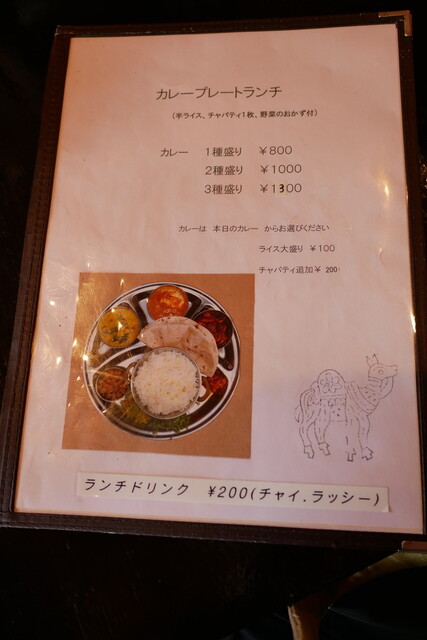 カレープレートランチ
（半ライス、チャパティ1枚、野菜のおかず付）
カレー 1種盛り ￥800
2種盛り ￥1000
3種盛り ￥1300
カレーは 本日のカレー からお選びください
ライス大盛り ￥100
チャパティ追加￥ 200
ランチドリンク ￥200(チャイ.ラッシー)